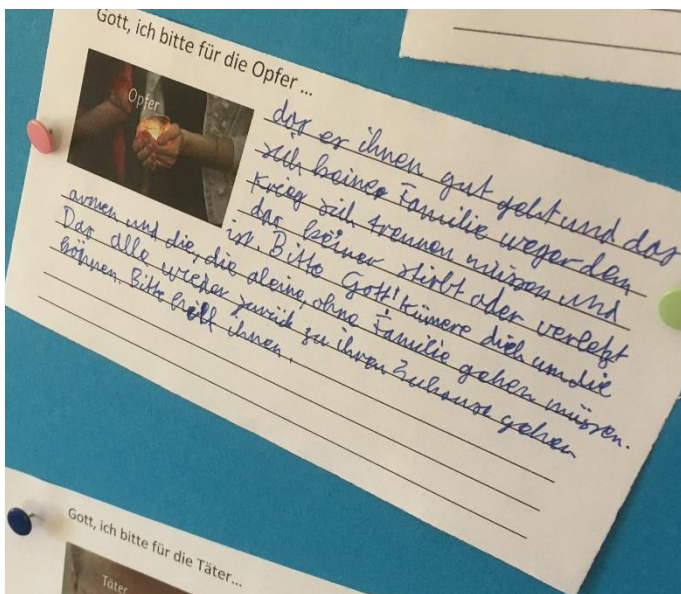 Gott, ich bitte für die Opfer ...
Opfer
das es ihnen gut geht und das
sich keiner Familie wegen dem
Krieg sich trennen müssen und
das keiner stirbt oder verletzt
ist. Bitte Gott! Kümere dich um die
armen und die, die aleine, ohne Familie gehen müssen.
Das alle wieder zurück zu ihren Zuhause gehen
können. Bitte hilf ihnen.
Gott, ich bitte für die Täter...
Täter